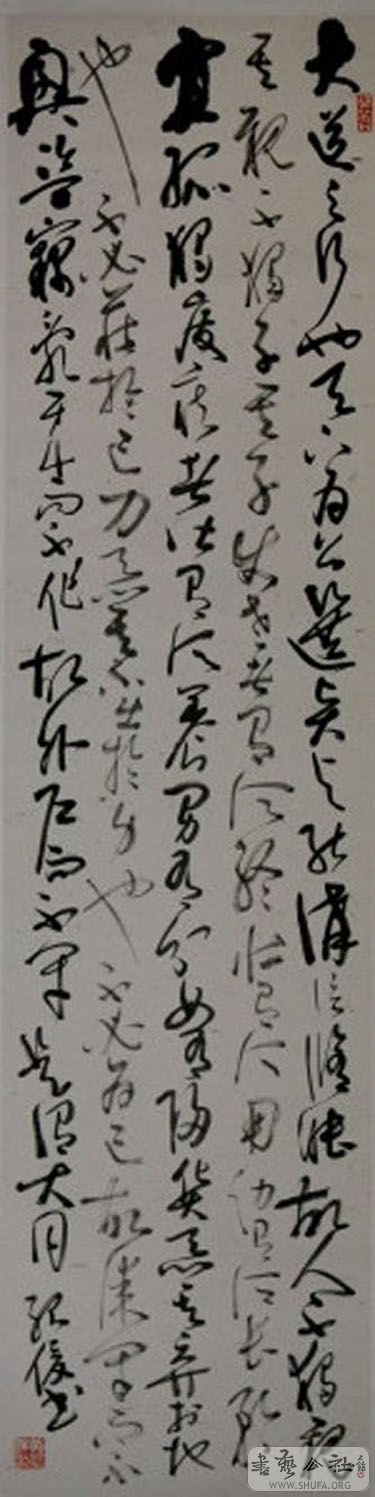 大道之行也天下為公選賢与能講信脩睦故人不獨親
其親不獨子其子使老者有所終壯有所用幼有所長矜
寡孤獨廢疾者皆有所養男有分女有歸貨惡其弃於地
也不必藏於己力惡其不出於身也不必為己故謀閉而不
興盜竊亂賊而不作故外户而不閉是謂大同 俊書
書藝公社
WWW.SHUFA.ORG